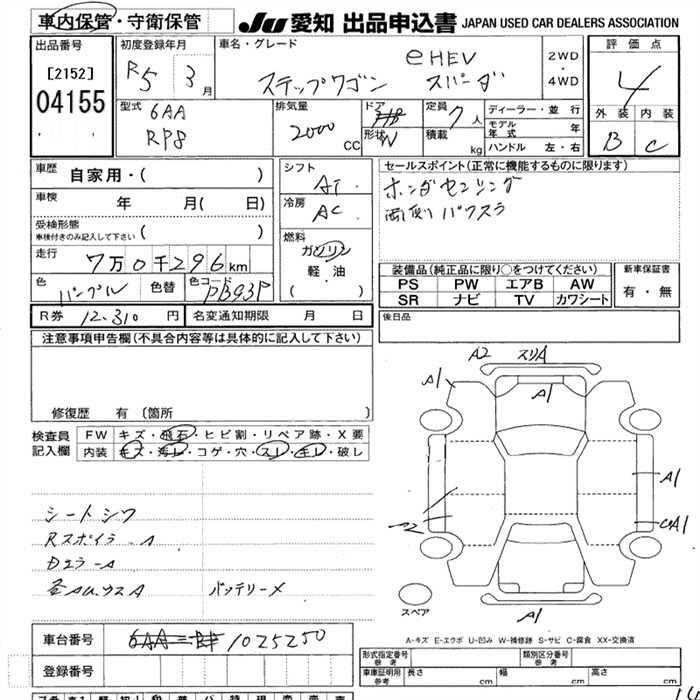 車内保管・守衛保管
JU 愛知 出品申込書 JAPAN USED CAR DEALERS ASSOCIATION
出品番号
[2152]
04155
初度登録年月
R5 3月
車名・グレード
e HEV
ステップワゴン スパーダ
2WD
・
4WD
評価点
4
外装 内装
B C
型式
6AA
RP8
排気量
2000 cc
ドア
形状 W
定員 7人
積載 kg
ディーラー・並行
モデル年式 年
ハンドル 左・右
車歴
自家用・( )
車検
年 月( 日)
受検形態
車検付きのみ記入して下さい ( )
走行
7万0千296km
色
パープル
色替
色コード
PB93P
シフト
AT
冷房
AC
燃料
ガソリン
軽・油
( )
セールスポイント(正常に機能するものに限ります)
ホンダセンシング
両側パワスラ
装備品(純正品に限り○をつけてください)
PS PW エアB AW
SR ナビ TV カワシート
新車保証書
有・無
R券 12,310円
名変通知期限 月 日
後日品
注意事項申告欄(不具合内容等は具体的に記入して下さい)
修復歴 有(箇所 )
検査員記入欄
FW キズ・飛石・ヒビ割・リペア跡・X要
内装 キズ・汚レ・コゲ・穴・スレ・キレ・破レ
シートシワ
Rスポイラ-A
バッテリー×
A2 スリA
A1
A1
A1
A1
A1
スペア
A-キズ E-エクボ U-凹み W-補修跡 S-サビ C-腐食 XX-交換済
車台番号
1025250
登録番号
形式指定番号
参考
類別区分番号
参考
車庫証明用
参考
長さ cm 幅 cm 高さ cm